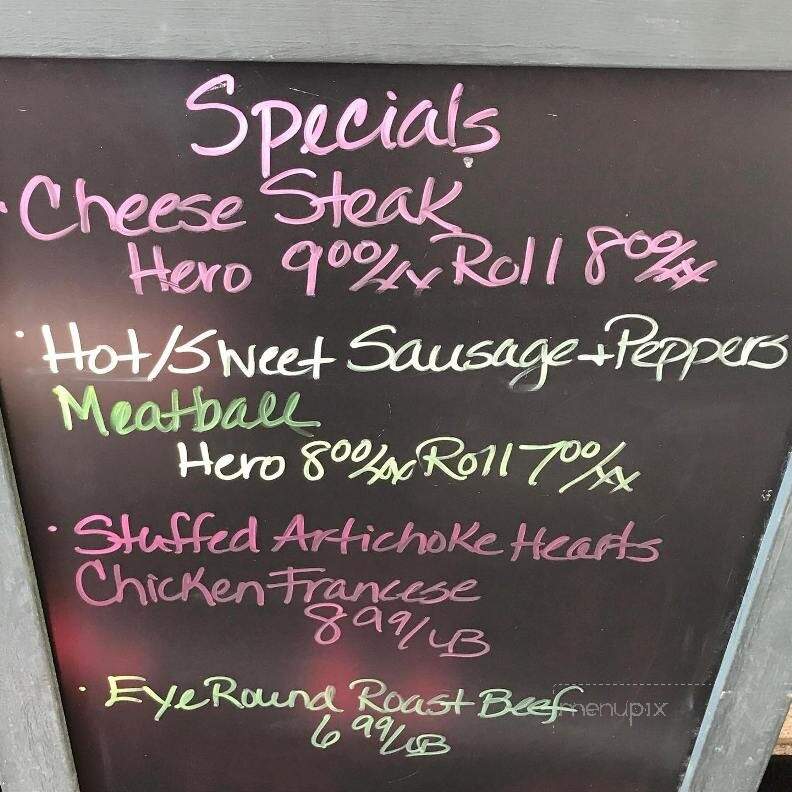 Specials
· Cheese Steak
Hero 9⁰⁰/xx Roll 8⁰⁰/xx
· Hot/Sweet Sausage + Peppers
Meatball
Hero 8⁰⁰/xx Roll 7⁰⁰/xx
· Stuffed Artichoke Hearts
Chicken Francese
8⁹⁹/LB
· Eye Round Roast Beef
6⁹⁹/LB
menupix